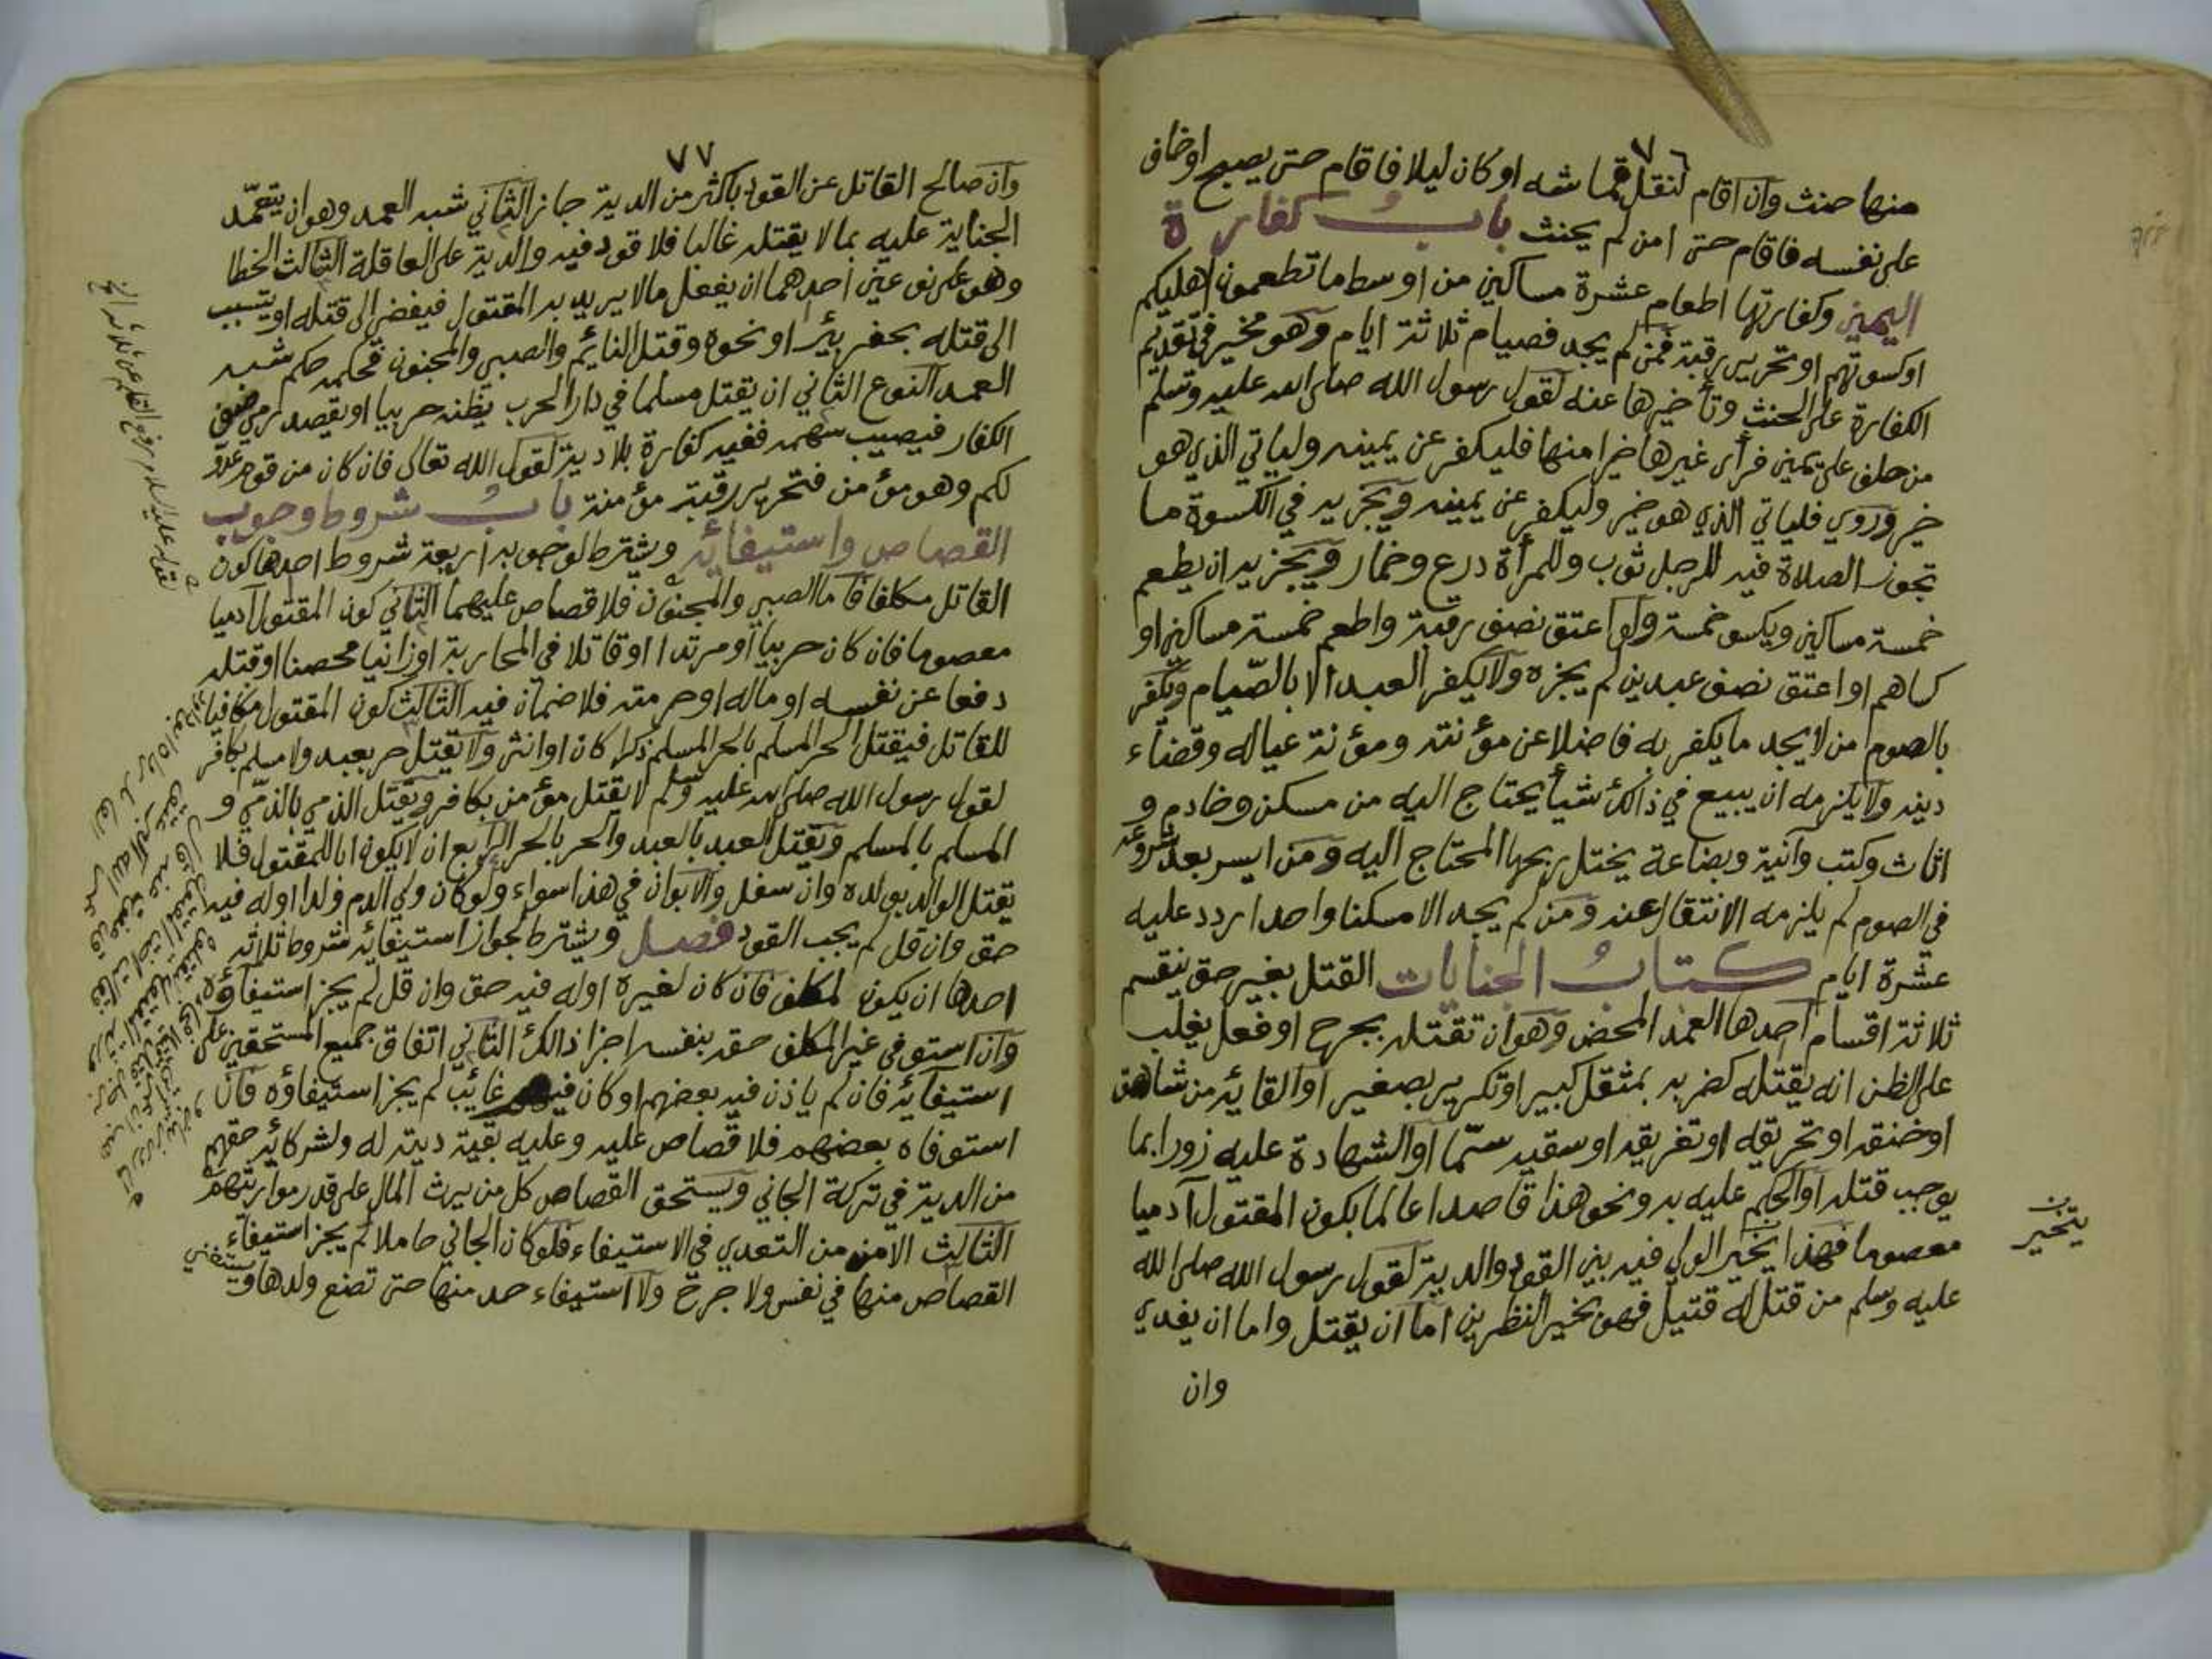 ٧٦
منها حنث وان اقام لنقل قماشه او كان ليلا فاقام حتى يصبح او خاف
على نفسه فاقام حتى امن لم يحنث باب كفارة
اليمين وكفارتها اطعام عشرة مساكين من اوسط ما تطعمون اهليكم
او كسوتهم او تحرير رقبة فمن لم يجد فصيام ثلاثة ايام وهو مخير في تقديم
الكفارة على الحنث وتأخيرها عنه لقول رسول الله صلى الله عليه وسلم
من حلف على يمين فرأى غيرها خيرا منها فليكفر عن يمينه ولياتي الذي هو
خير وروي فلياتي الذي هو خير وليكفر عن يمينه ويجزيه في الكسوة ما
تجوز الصلاة فيه للرجل ثوب وللمرأة درع وخمار ويجزيه ان يطعم
خمسة مساكين ويكسو خمسة ولو اعتق نصف رقبة واطعم خمسة مساكين او
كساهم او اعتق نصف عبدين لم يجزه ولا يكفر العبد الا بالصّيام ويكفر
بالصوم من لا يجد ما يكفر به فاضلا عن مؤنته ومؤنة عياله وقضاء
دينه ولا يلزمه ان يبيع في ذالك شيأ يحتاج اليه من مسكن وخادم و
اثاث وكتب وآنية وبضاعة يختل ربحها المحتاج اليه ومن ايسر بعد شروعه
في الصوم لم يلزمه الانتقال عنه ومن لم يجد الا مسكنا واحدا ردد عليه
عشرة ايام كتاب الجنايات القتل بغير حق ينقسم
ثلاثة اقسام احدها العمد المحض وهو ان تقتله بجرح او فعل يغلب
على الظن انه يقتله كضربه بمثقل كبير او تكريره بصغير او القائه من شاهق
او خنقه او تحريقه او تغريقه او سقيه سمّا او الشهادة عليه زورا بما
يوجب قتله او الحكم عليه به ونحو هذا قاصدا عالما بكون المقتول آدميا
معصوما فهذا يخير الولي فيه بين القود والدية لقول رسول الله صلى الله
عليه وسلم من قتل له قتيل فهو بخير النظرين اما ان يقتل واما ان يفدي
وان
يتخير
٧٧
وان صالح القاتل عن القود باكثر من الدية جاز الثاني شبه العمد وهو ان يتعمّد
الجناية عليه بما لا يقتله غالبا فلا قود فيه والدية على العاقلة الثالث الخطا
وهو على نوعين احدهما ان يفعل مالا يريد به المقتول فيفضي الى قتله او يتسبب
الى قتله بحفر بئر او نحوه وقتل النائم والصبي والمجنون فحكمه حكم شبه
العمد النوع الثاني ان يقتل مسلما في دار الحرب يظنه حربيا او يقصد رمي صف
الكفار فيصيب سهمه ففيه كفارة بلا دية لقول الله تعالى فان كان من قوم عدو
لكم وهو مؤمن فتحرير رقبة مؤمنة باب شروط وجوب
القصاص واستيفائه ويشترط لوجوبه اربعة شروط احدها كون
القاتل مكلفا فاما الصبي والمجنون فلا قصاص عليهما الثاني كون المقتول آدميا
معصوما فان كان حربيا او مرتدا او قاتلا في المحاربة او زانيا محصنا او قتله
دفعا عن نفسه او ماله او حرمته فلا ضمان فيه الثالث كون المقتول مكافيا
للقاتل فيقتل الحر المسلم بالحر المسلم ذكرا كان او انثى ولا يقتل حر بعبد ولا مسلم بكافر
لقول رسول الله صلى الله عليه وسلم لا يقتل مؤمن بكافر ويقتل الذمي بالذمي و
المسلم بالمسلم ويقتل العبد بالعبد والحر بالحر الرابع ان لا يكون ابا للمقتول فلا
يقتل الوالد بولده وان سفل والابوان في هذا سواء ولو كان ولي الدم ولدا او له فيه
حق وان قل لم يجب القود فصل ويشترط لجواز استيفائه شروط ثلاثة
احدها ان يكون لمكلف فان كان لغيره او له فيه حق وان قل لم يجز استيفاؤه
وان استوفى غير المكلف حقه بنفسه اجزا ذالك الثاني اتفاق جميع المستحقين على
استيفائه فان لم ياذن فيه بعضهم او كان فيهم غائب لم يجز استيفاؤه فان
استوفاه بعضهم فلا قصاص عليه وعليه بقية ديته له ولشركائه حقهم
من الدية في تركة الجاني ويستحق القصاص كل من يرث المال على قدر مواريثهم
الثالث الامن من التعدي في الاستيفاء فلو كان الجاني حاملا لم يجز استيفاء
القصاص منها في نفس ولا جرح ولا استيفاء حد منها حتى تضع ولدها ويستغني
لقوله عليه السلام رفع القلم عن ثلاثة الخ